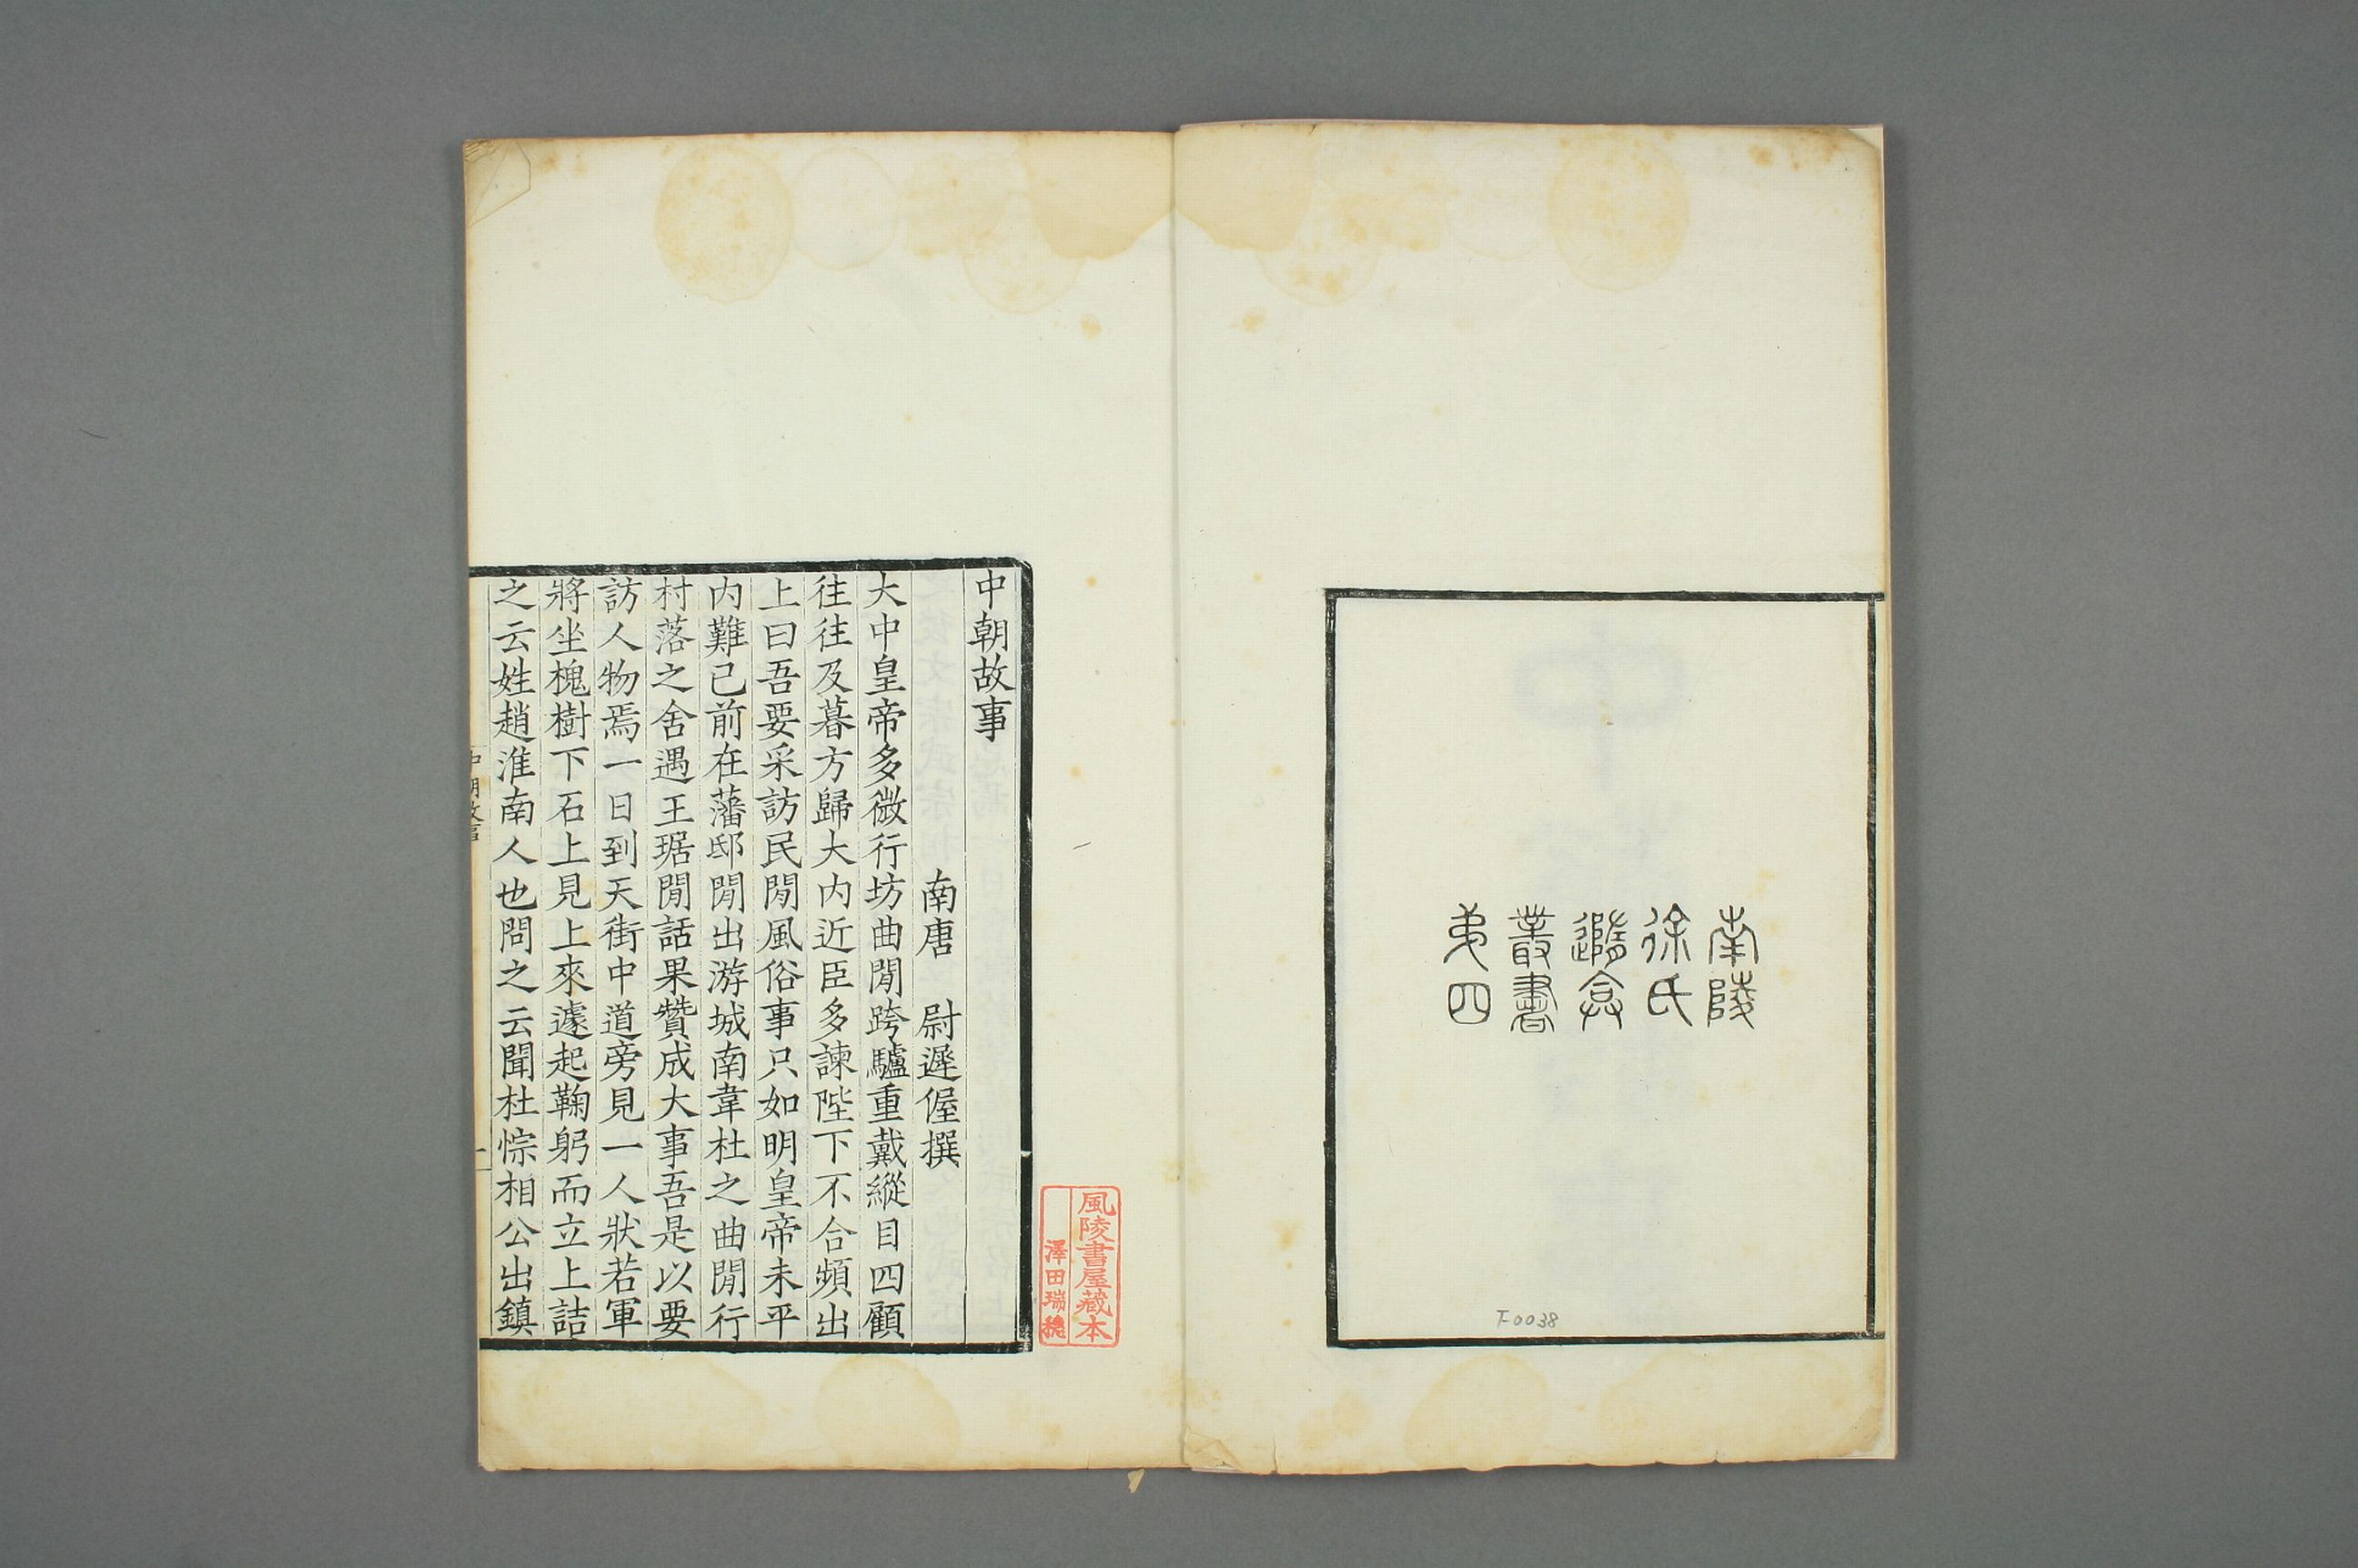 南陵
徐氏
隨盦
叢書
弟四
F0038
風陵書屋藏本
澤田瑞穗
中朝故事
南唐　尉遲偓撰
大中皇帝多微行坊曲閒跨驢重戴縱目四顧
往往及暮方歸大内近臣多諫陛下不合頻出
上曰吾要采訪民閒風俗事只如明皇帝未平
内難已前在藩邸閒出游城南韋杜之曲閒行
村落之舍遇王琚閒話果贊成大事吾是以要
訪人物焉一日到天街中道旁見一人狀若軍
將坐槐樹下石上見上來遽起鞠躬而立上詰
之云姓趙淮南人也問之云聞杜悰相公出鎮
中朝故事
一